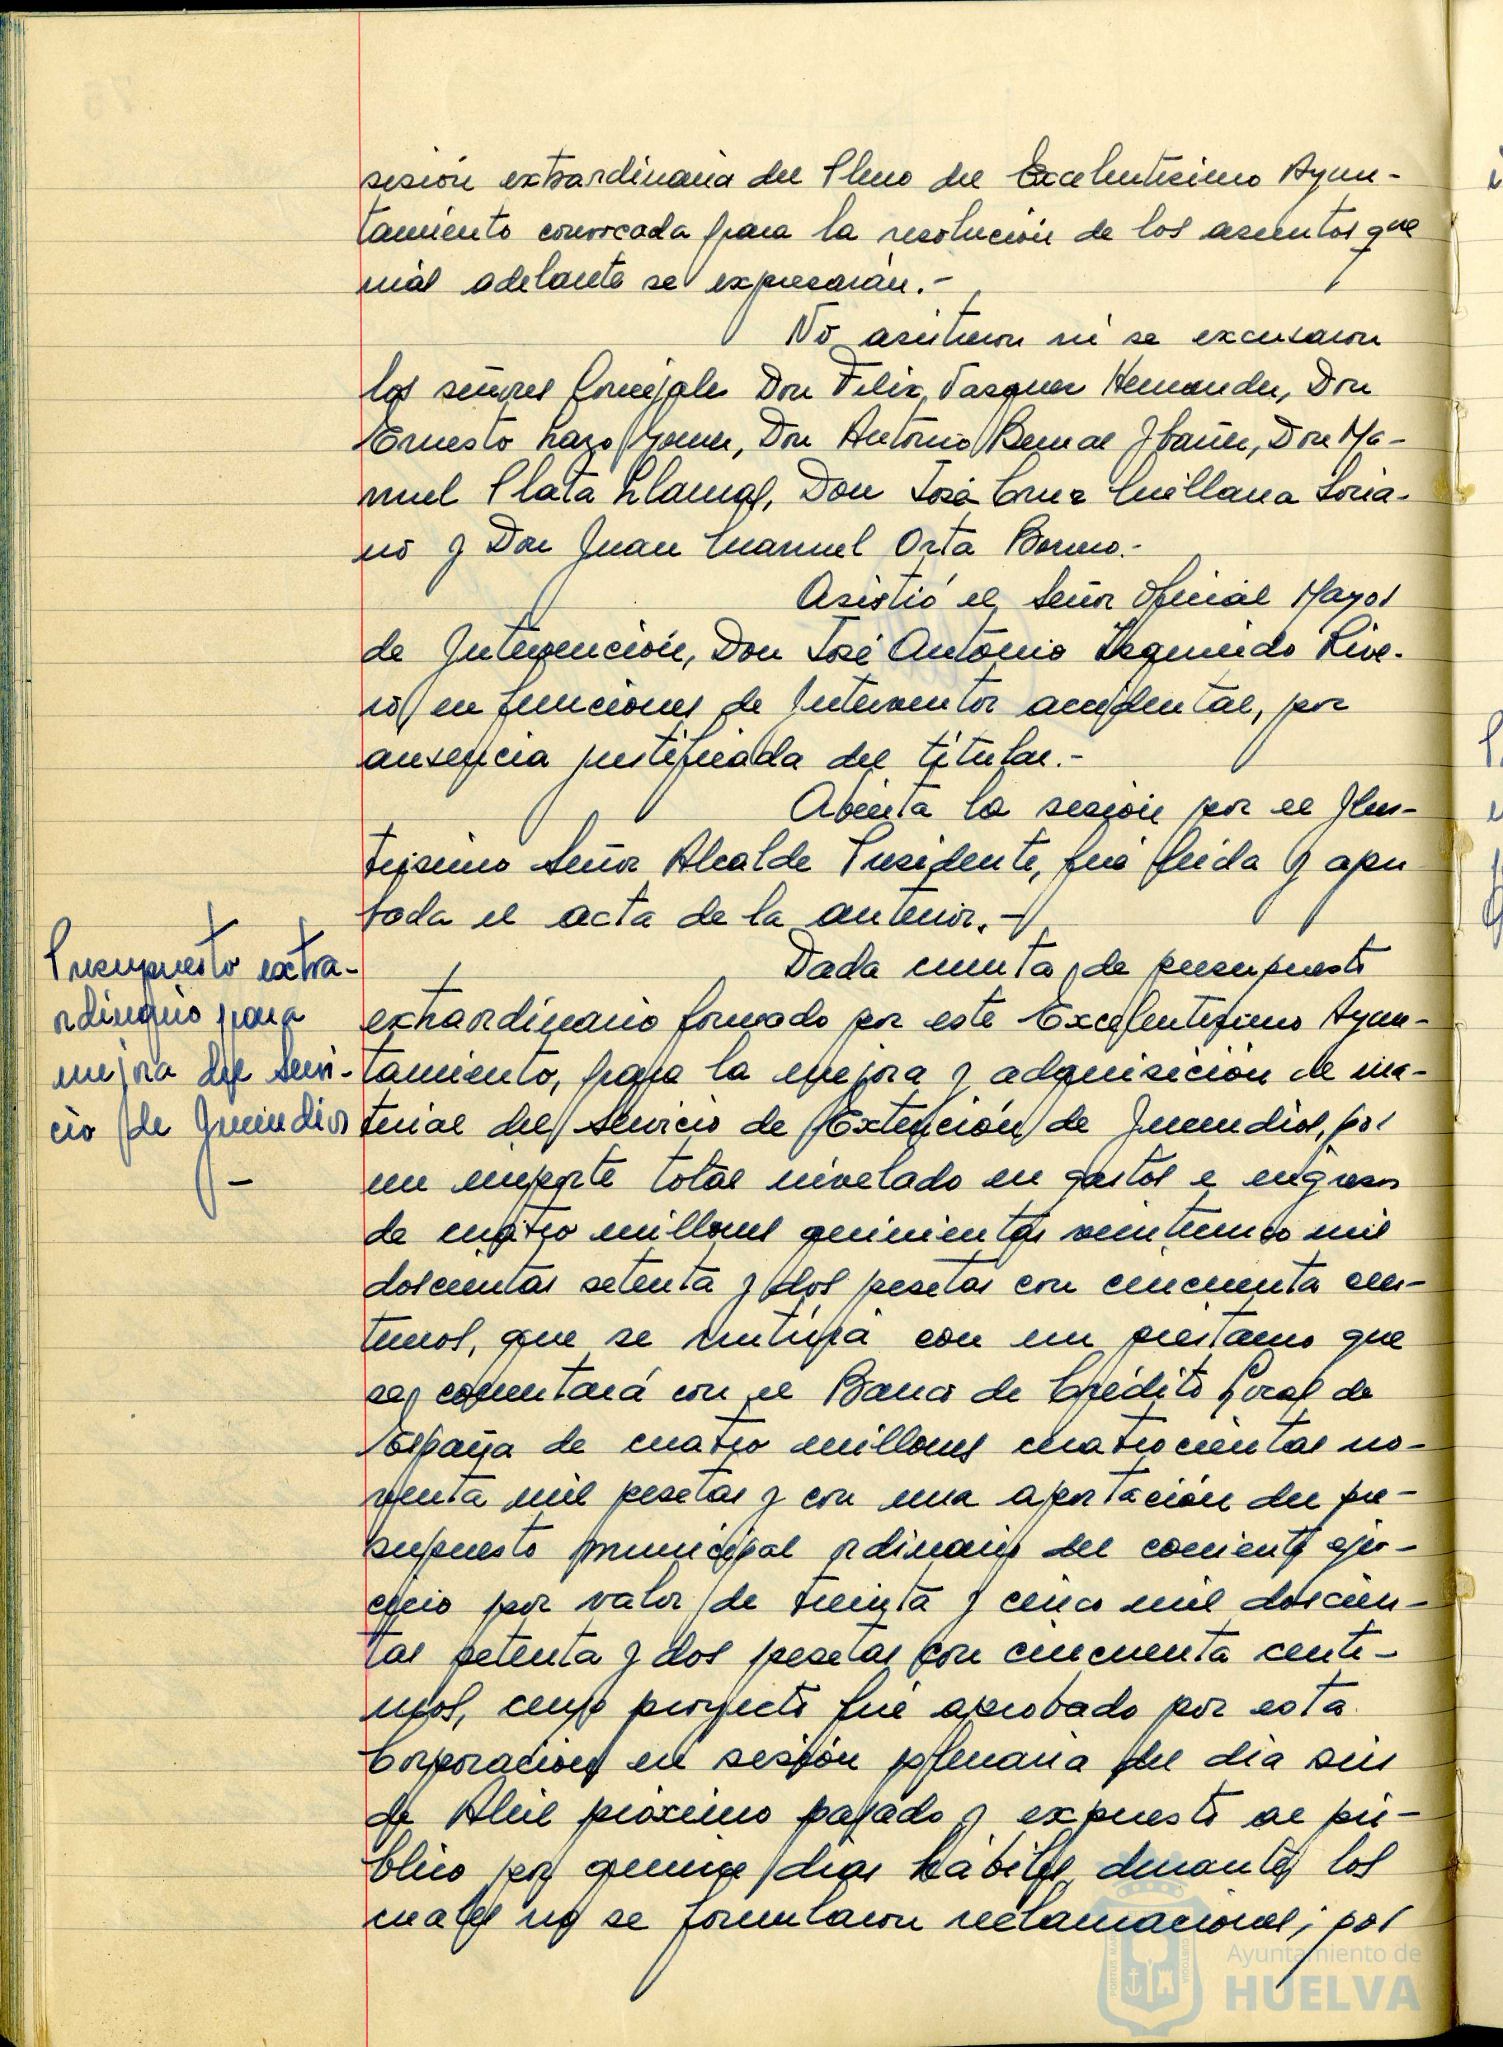 sesión extraordinaria del Pleno del Excelentísimo Ayun-
tamiento convocada para la resolución de los asuntos que
más adelante se expresarán.-
No asistieron ni se excusaron
los señores Concejales Don Felix Vazquez Hernandez, Don
Ernesto Lazo Gomez, Don Antonio Bernal Ibañez, Don Ma-
nuel Plata Llamas, Don José Cruz Quillana Soria-
no y Don Juan Manuel Orta Borrero.-
Asistió el Señor Oficial Mayor
de Intervención, Don José Antonio Izquierdo Rive-
ro en funciones de Interventor accidental, por
ausencia justificada del titular.-
Abierta la sesión por el Ilus-
trísimo Señor Alcalde Presidente, fué leida y apro
bada el acta de la anterior.-
Presupuesto extra-
ordinario para
mejora del Servi-
cio de Incendios
-
Dada cuenta de presupuesto
extraordinario formado por este Excelentísimo Ayun-
tamiento, para la mejora y adquisición de ma-
terial del Servicio de Extinción de Incendios, por
un importe total nivelado en gastos e ingresos
de cuatro millones quinientas veinticinco mil
doscientas setenta y dos pesetas con cincuenta cen-
timos, que se nutrirá con un préstamo que
se concertará con el Banco de Crédito Local de
España de cuatro millones cuatrocientas no-
venta mil pesetas y con una aportación del pre-
supuesto municipal ordinario del corriente ejer-
cicio por valor de treinta y cinco mil doscien-
tas setenta y dos pesetas con cincuenta centi-
mos, cuyo proyecto fué aprobado por esta
Corporación en sesión plenaria del día seis
de Abril próximo pasado y expuesto al pú-
blico por quince días hábiles, durante los
cuales no se formularon reclamaciones; por
Ayuntamiento de
HUELVA